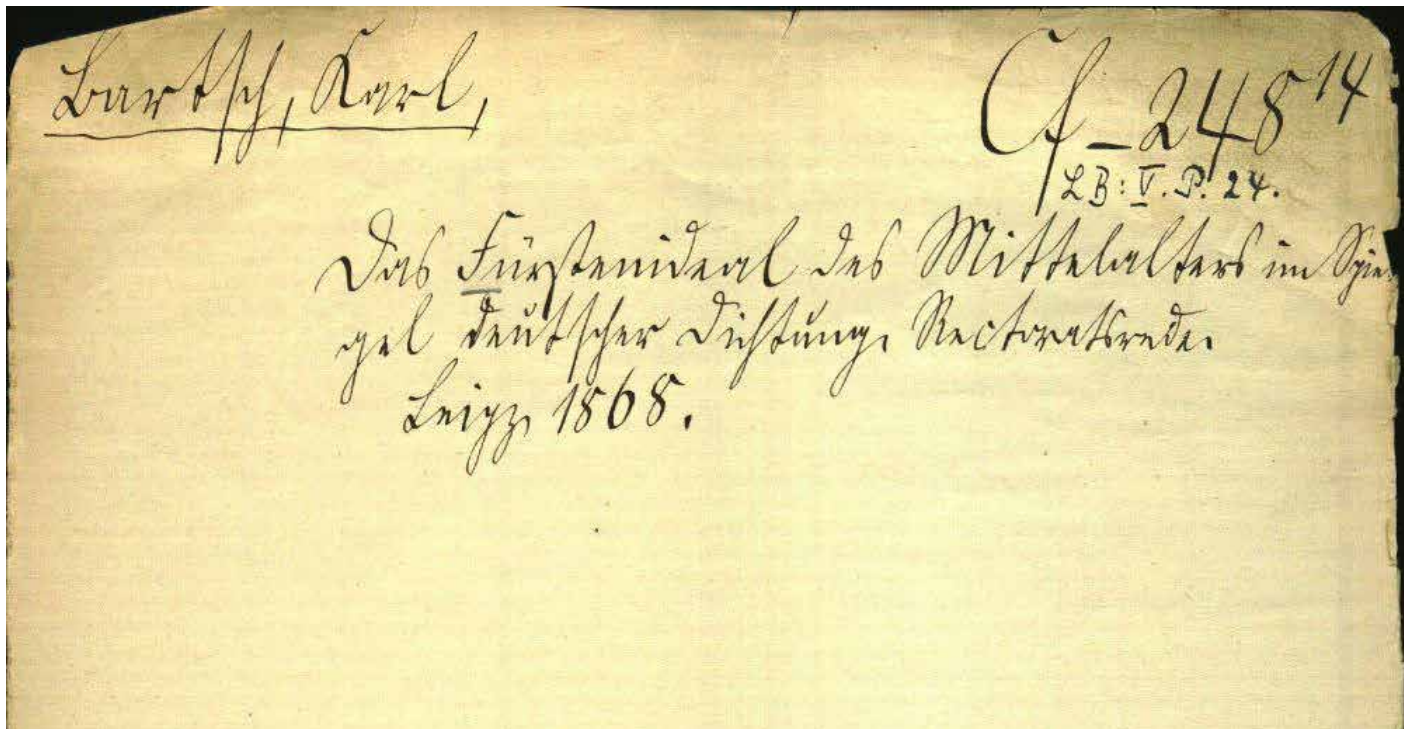 Bartsch, Karl,
Cf-248¹⁴
LB: V. P. 24.
Das Fürstenideal des Mittelalters im Spie-
gel deutscher Dichtung. Rectoratsrede.
Leipz. 1868.